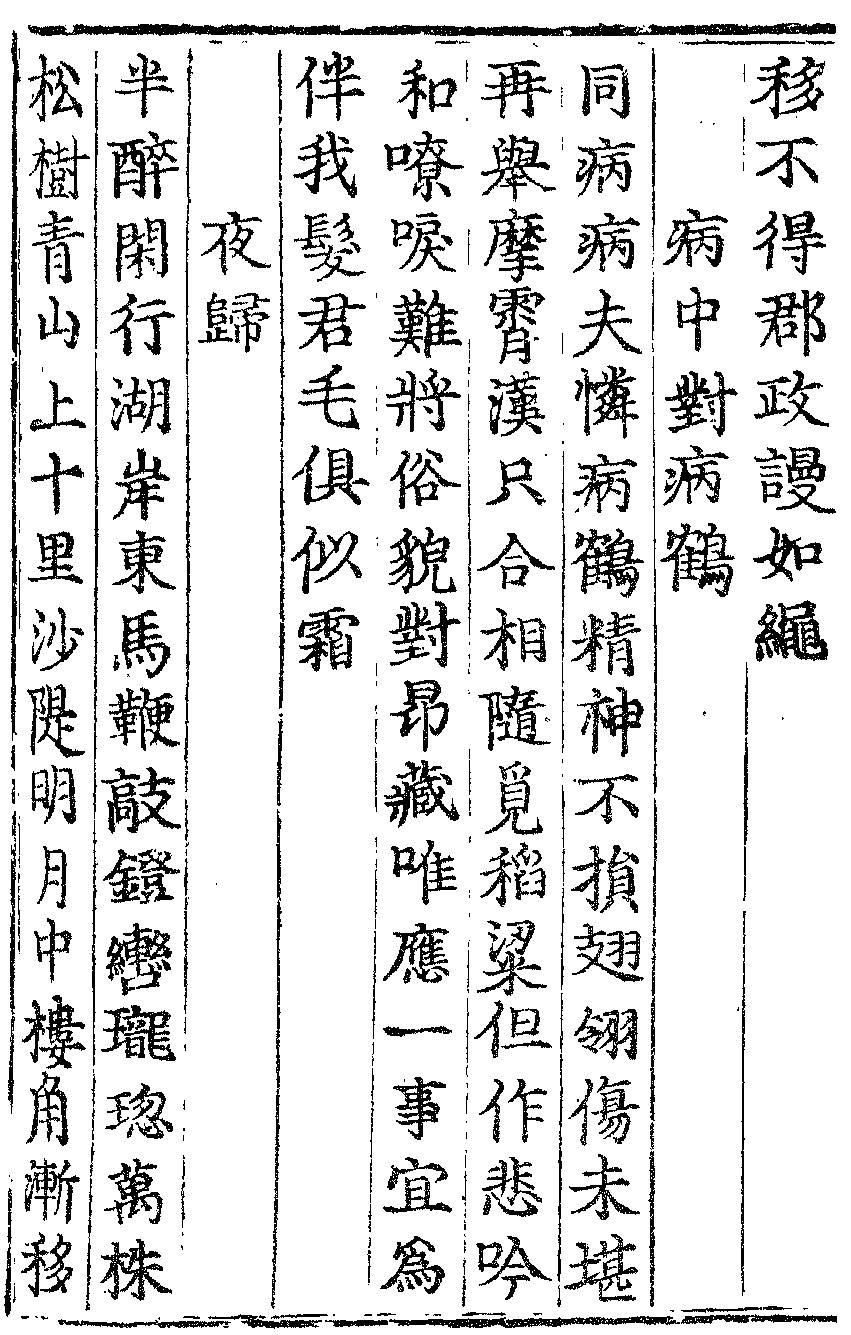 移不得郡政謾如繩
病中對病鶴
同病病夫憐病鶴精神不損翅翎傷未堪
再舉摩霄漢只合相隨覓稻粱但作悲吟
和嘹唳難將俗貌對昂藏唯應一事宜爲
伴我髮君毛俱似霜
夜歸
半醉閑行湖岸東馬鞭敲鐙轡瓏璁萬株
松樹青山上十里沙隄明月中樓角漸移